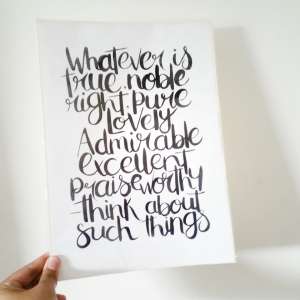 Whatever is
true. noble
right. Pure
Lovely
Admirable
excellent
Praiseworthy
-think about
such things